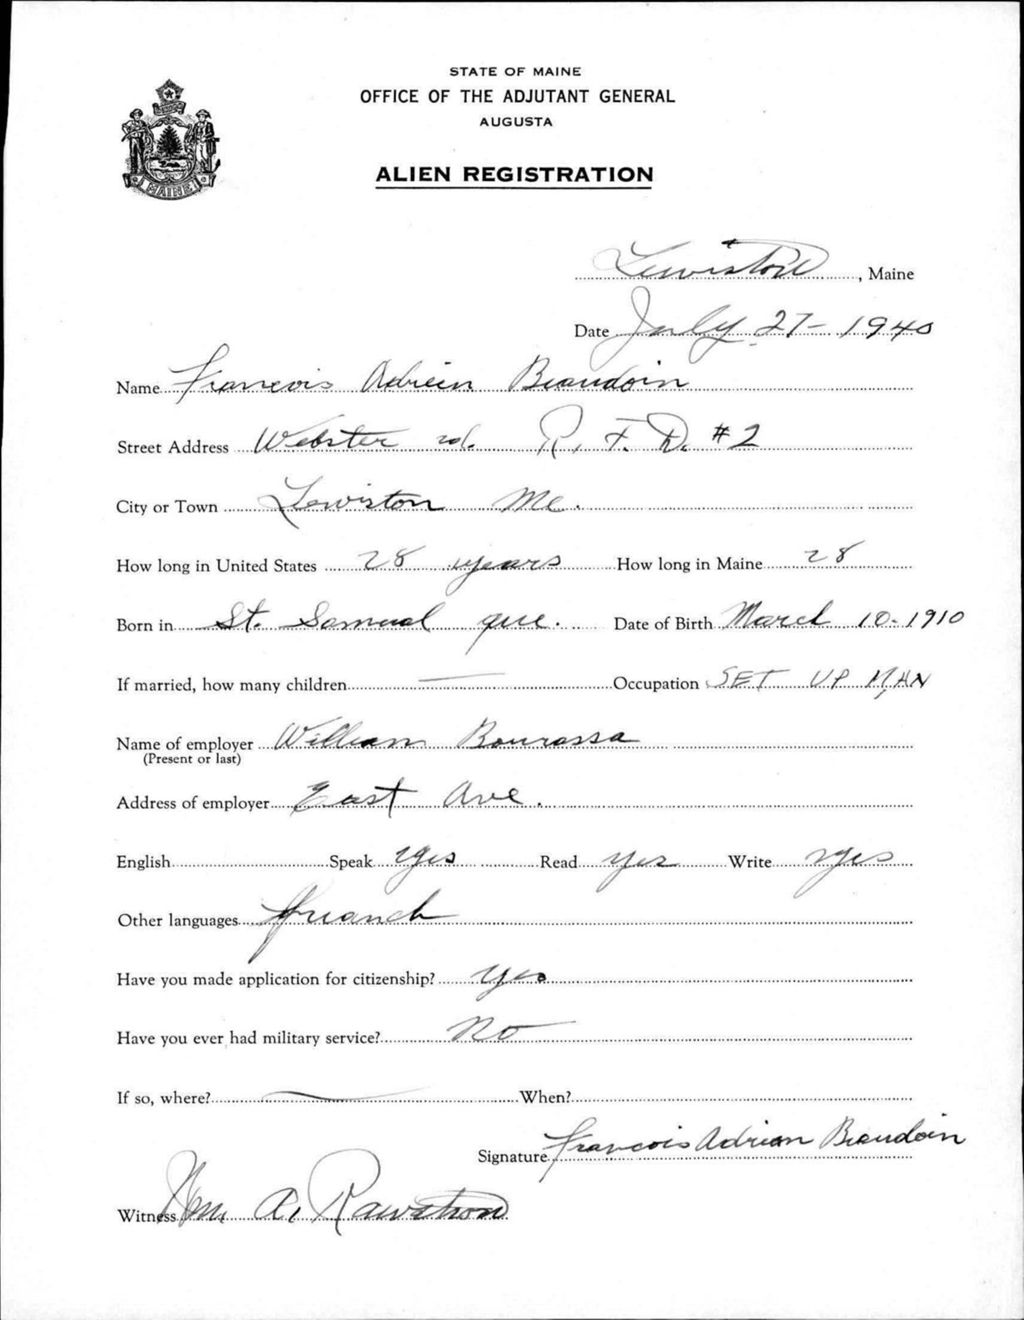 STATE OF MAINE
OFFICE OF THE ADJUTANT GENERAL
AUGUSTA
ALIEN REGISTRATION
MAINE
Lewiston, Maine
Date July 27 - 1940
Name Francois Adrien Beaudoin
Street Address Webster rd. R. F. D. #2
City or Town Lewiston Me.
How long in United States 28 years How long in Maine 28
Born in St. Samual que. Date of Birth March 10 - 1910
If married, how many children — Occupation SET UP MAN
Name of employer William Bourassa
(Present or last)
Address of employer East Ave.
English Speak yes Read yes Write yes
Other languages freanch
Have you made application for citizenship? yes
Have you ever had military service? No
If so, where? — When?
Signature Francois Adrian Beaudoin
Witness Wm. A. Rawstron